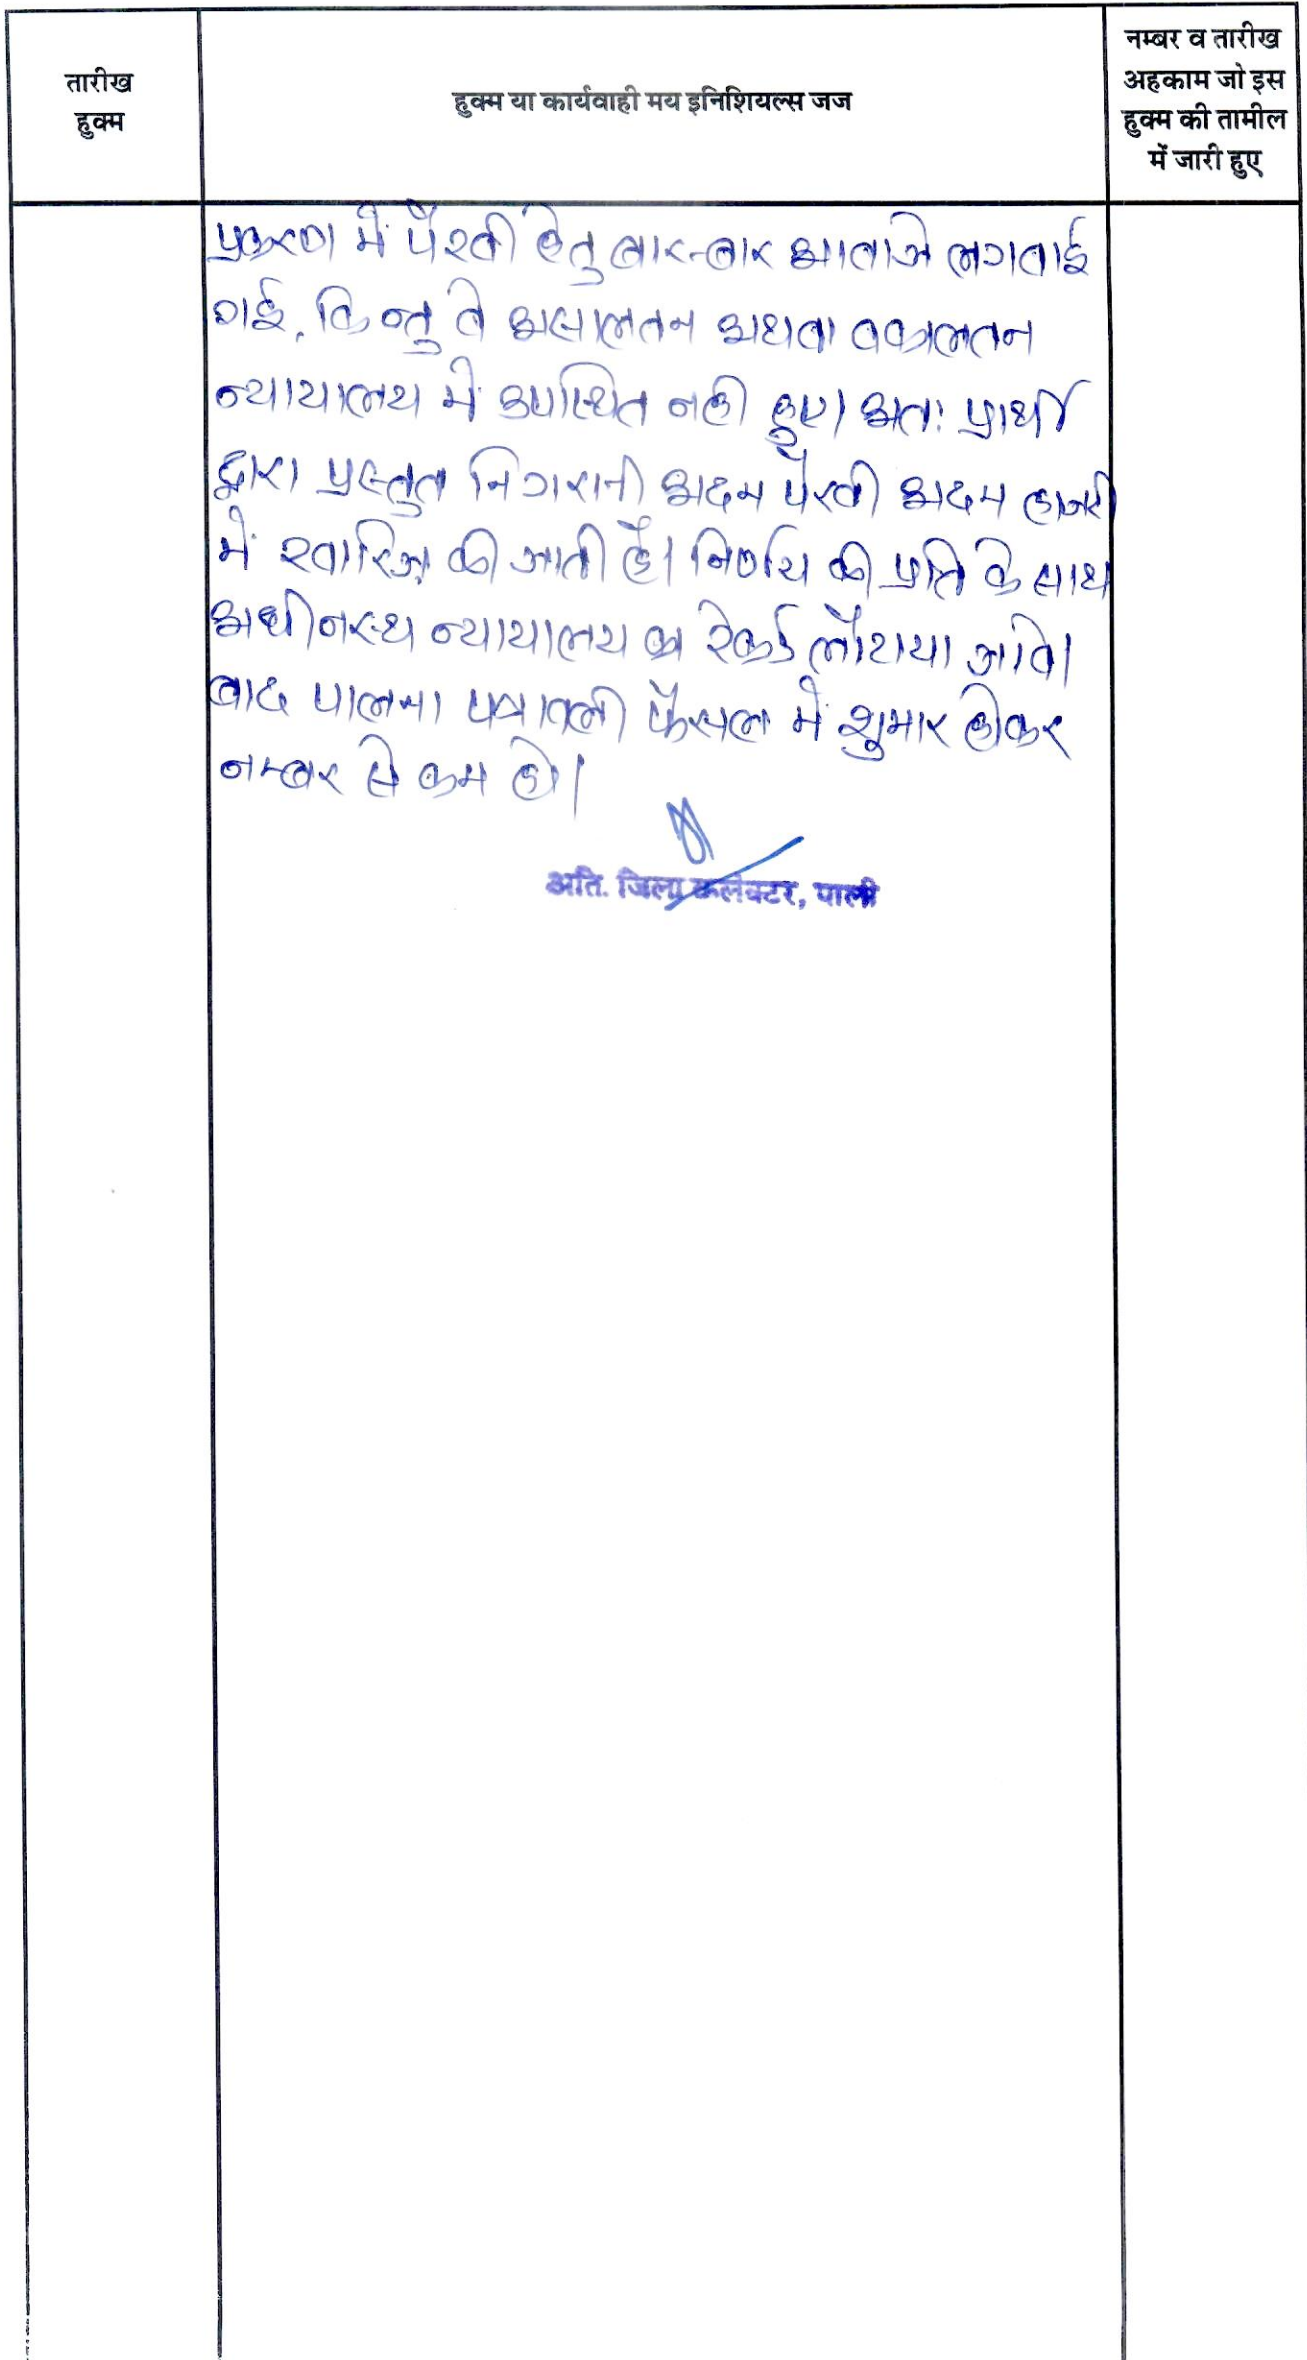 तारीख
हुक्म
हुक्म या कार्यवाही मय इनिशियल्स जज
नम्बर व तारीख
अहकाम जो इस
हुक्म की तामील
में जारी हुए
प्रकरण में पैरवी हेतु बार-बार आवाजे लगवाई
गई, किन्तु वे असालतन अथवा वकालतन
न्यायालय में उपस्थित नही हुए। अतः प्रार्थी
द्वारा प्रस्तुत निगरानी अदम पैरवी अदम हाजरी
में खारिज की जाती है। निर्णय की प्रति के साथ
अधीनस्थ न्यायालय का रेकर्ड लौटाया जावे।
बाद पालना पत्रावली फैसल में शुमार होकर
नम्बर से कम हो।
अति. जिला कलेक्टर, पाली